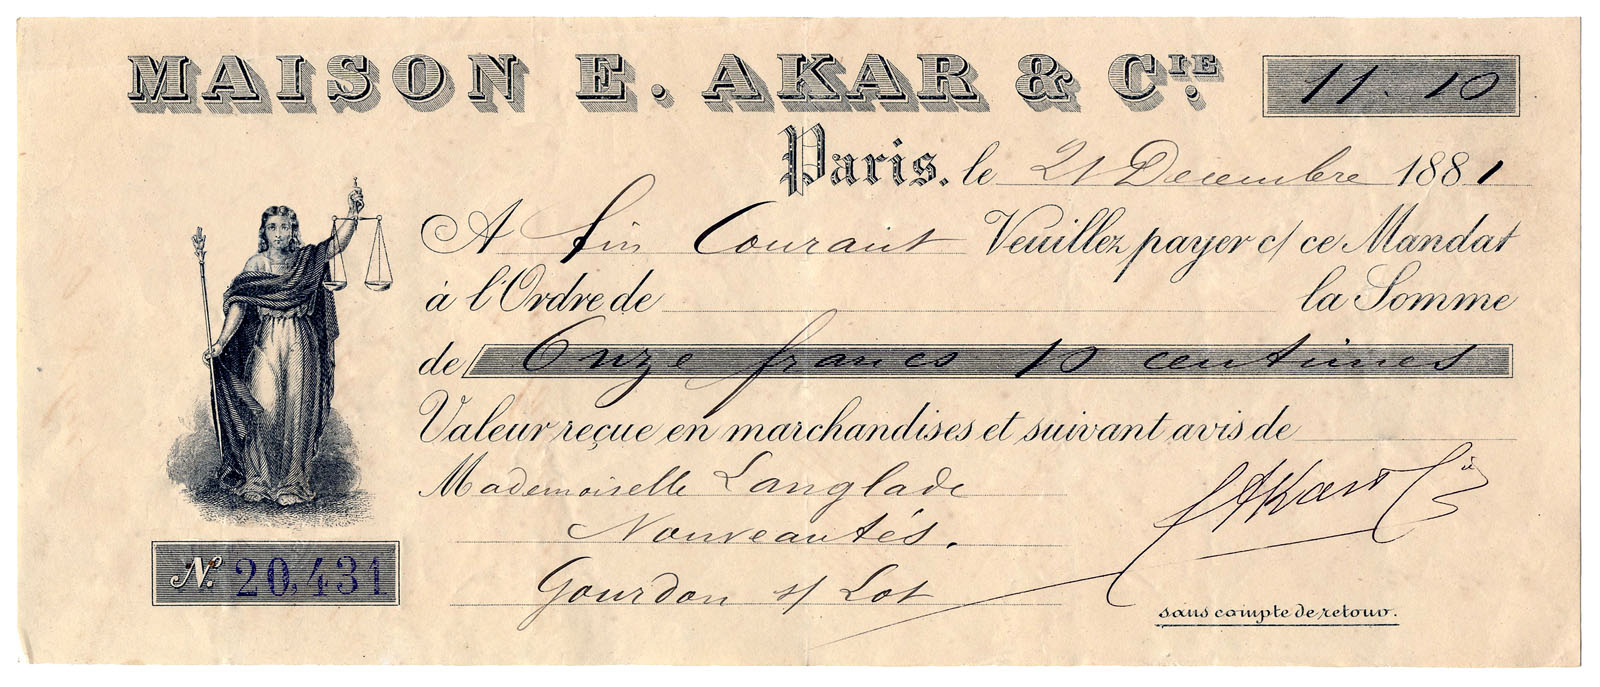 MAISON E. AKAR & CIE.
11.10
Paris, le 21 Decembre 1881
A fin Courant Veuillez payer c/ ce Mandat
à l'Ordre de la Somme
de Onze francs 10 centimes
Valeur reçue en marchandises et suivant avis de
Mademoiselle Langlade
Nouveautés.
Gourdon s/ Lot
EAkar Cie
No. 20,431
sans compte de retour.